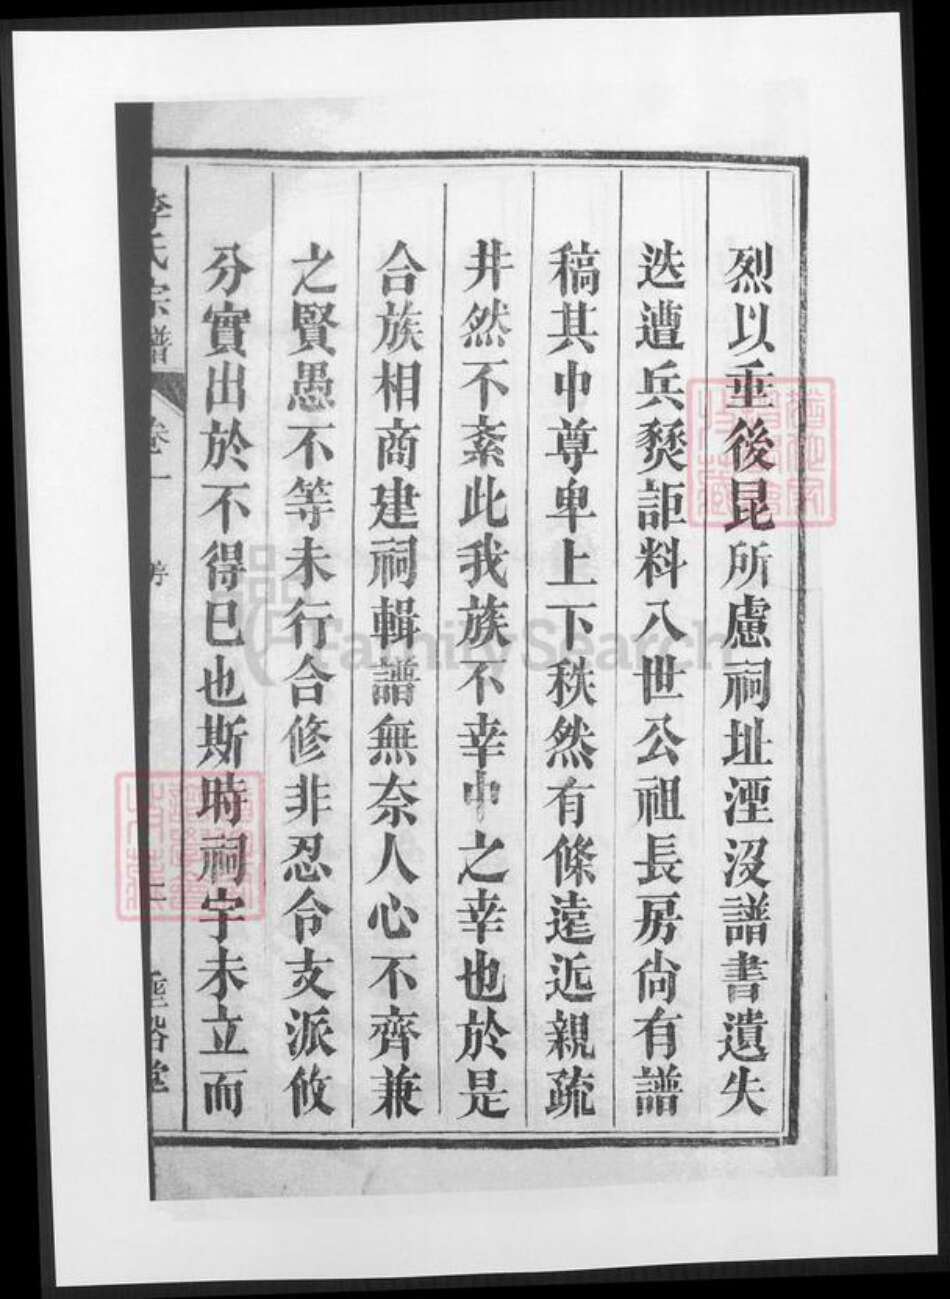 烈以垂後昆所慮祠址湮沒譜書遺失
迭遭兵燹詎料八世公祖長房尙有譜
稿其中尊卑上下秩然有條遠近親疏
井然不紊此我族不幸中之幸也於是
合族相商建祠輯譜無奈人心不齊兼
之賢愚不等未行合修非忍令支派攸
分實出於不得已也斯時祠宇未立而
李氏宗譜 卷一 序
FamilySearch